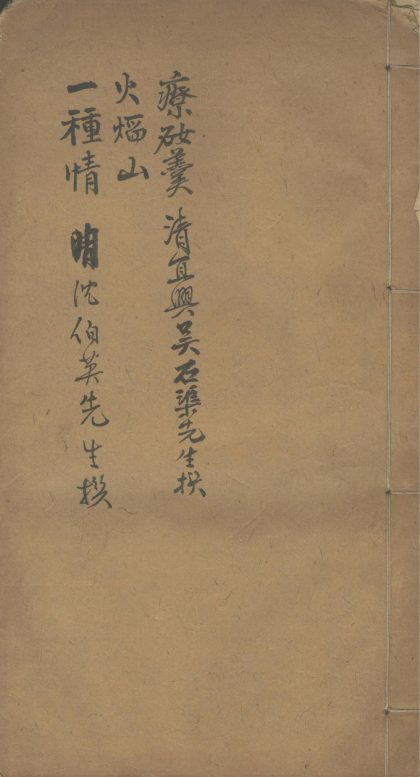 療妬羹 清宜興吴石渠先生撰
火熖山
一種情 明沈伯英先生撰